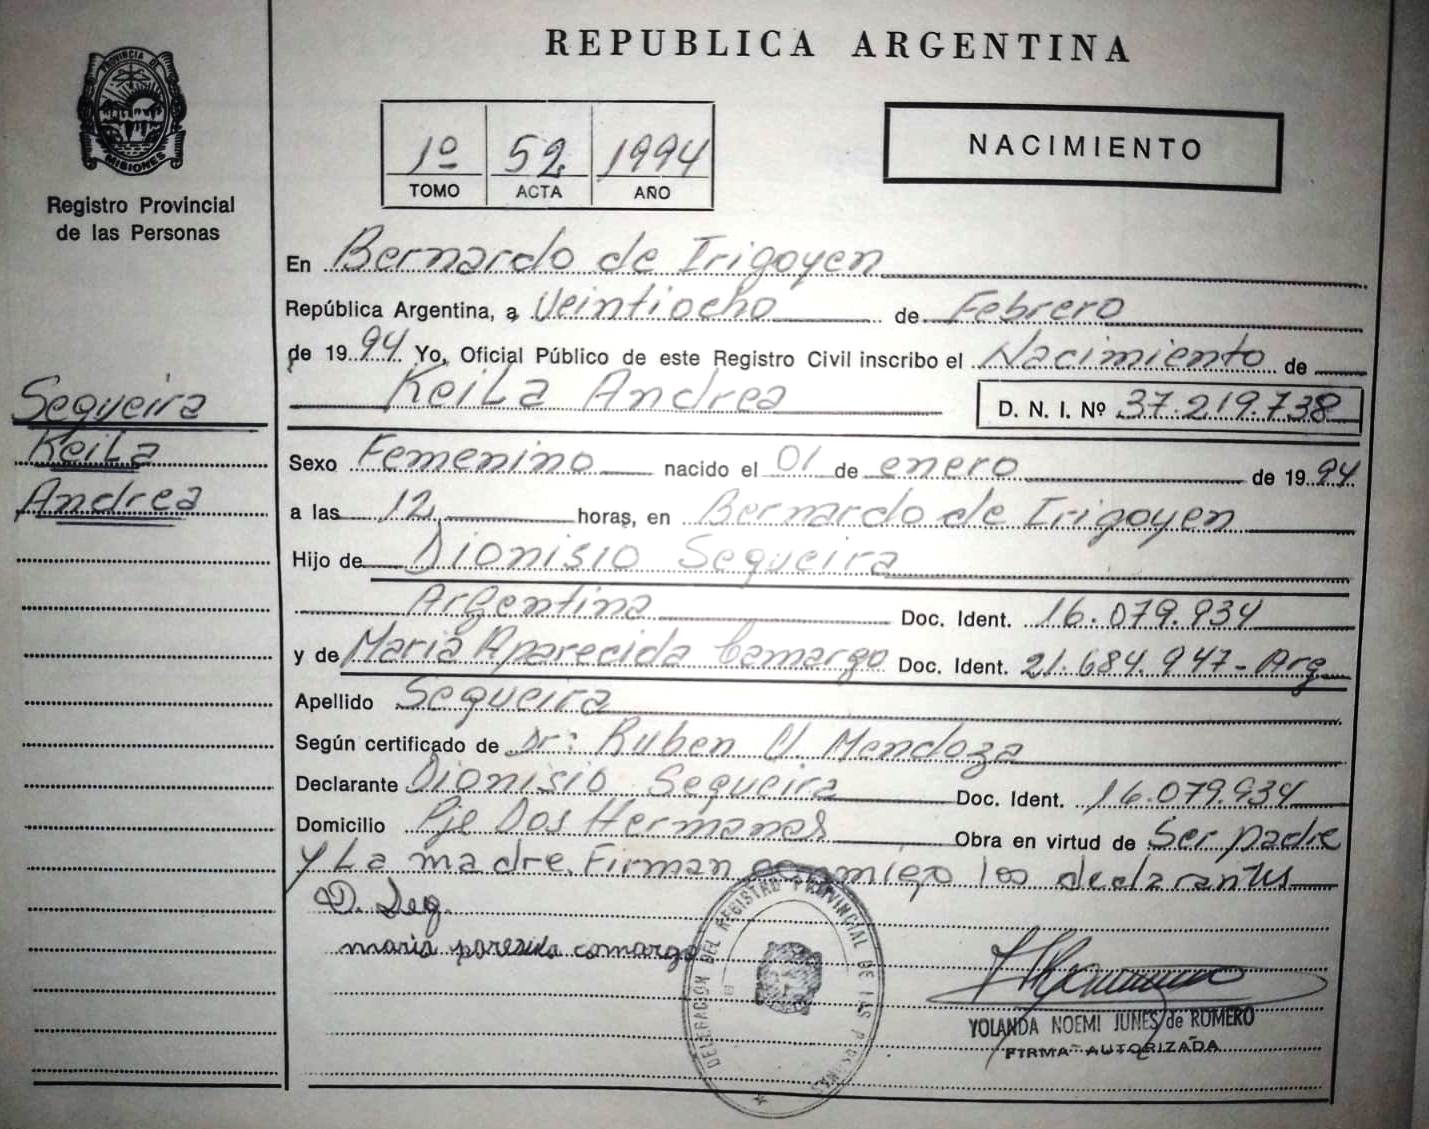 REPUBLICA ARGENTINA
PROVINCIA DE MISIONES
Registro Provincial
de las Personas
1º 52 1994
TOMO ACTA AÑO
NACIMIENTO
En Bernardo de Irigoyen
República Argentina, a Veintiocho de Febrero
de 1994 Yo, Oficial Público de este Registro Civil inscribo el Nacimiento de
Keila Andrea D. N. I. Nº 37.219.738
Sequeira
Keila
Andrea
Sexo Femenino nacido el 01 de enero de 1994
a las 12 horas, en Bernardo de Irigoyen
Hijo de Dionisio Sequeira
Argentina Doc. Ident. 16.079.934
y de Maria Aparecida Camargo Doc. Ident. 21.684.947 - Arg
Apellido Sequeira
Según certificado de Dr: Ruben Mendoza
Declarante Dionisio Sequeira Doc. Ident. 16.079.934
Domicilio Pje Dos Hermanas Obra en virtud de Ser padre
y La madre. Firman conmigo los declarantes
D. Seq.
maria camargo
DELEGACION DEL REGISTRO PROVINCIAL DE LAS PERSONAS
YOLANDA NOEMI JUNES de ROMERO
FIRMA AUTORIZADA